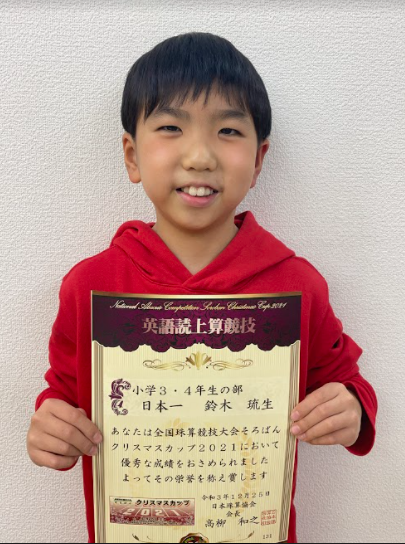 National Abacus Competition Soroban Christmas Cup 2021
英語読上算競技
小学3・4年生の部
日本一 鈴木 琉生
あなたは全国珠算競技大会そろばん
クリスマスカップ2021において
優秀な成績をおさめられました
よってその栄誉を称え賞します
令和3年12月25日
日本珠算協会
会長
高柳 和之
クリスマスカップ
2021